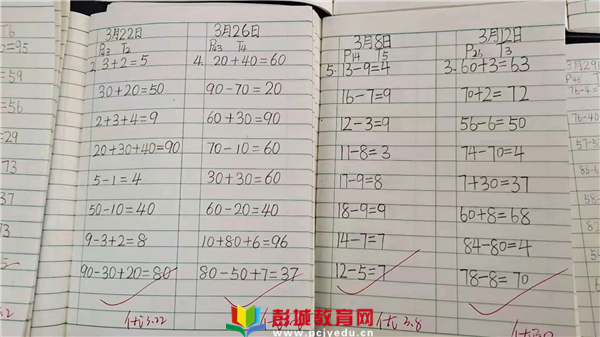 T6
2=95
=59
=56
=29
73
37
73
3月22日
P43 T2
2. 3+2=5
30+20=50
2+3+4=9
20+30+40=90
5-1=4
50-10=40
9-3+2=8
90-30+20=80
优3.22
3月26日
P43 T4
4. 20+40=60
90-70=20
60+30=90
70-10=60
30+30=60
60-20=40
10+80+6=96
80-50+7=37
3月8日
P14 T5
5. 13-9=4
16-7=9
12-3=9
11-8=3
17-9=8
18-9=9
14-7=7
12-5=7
优3.8
3月12日
T3
3. 60+3=63
70+2=72
56-6=50
74-70=4
7+30=37
60+8=68
84-80=4
78-8=70
3月29
76-4=
76-40
彭城教育网
www.pcjyedu.cn